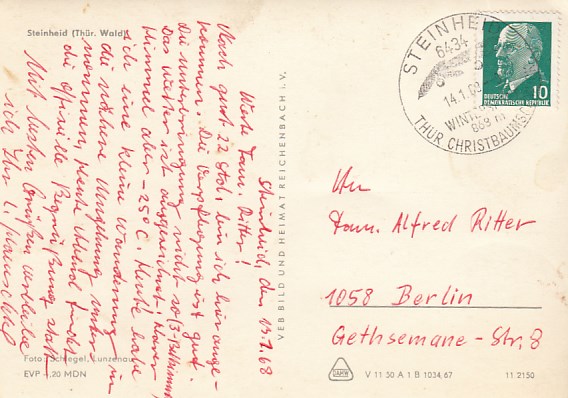 Steinheid (Thür. Wald)
Steinheid, den 15.1.68
Werte Fam. Ritter!
Nach gut 22 Std. bin ich hier ange-
kommen. Die Verpflegung ist gut.
Die Unterbringung nicht so
Das Wetter ist ausgezeichnet, klarer
Himmel aber -25°C. Heute habe
ich eine kleine Wanderung in
die nähere Umgebung unter-
nommen, heute Abend findet
die offizielle Begrüßung statt.
Mit besten Grüßen verbleibe
ich Ihr
Foto: Schlegel, Lunzenau
EVP -,20 MDN
VEB BILD UND HEIMAT REICHENBACH i. V.
STEINHEID
6434
14.1.68
869 m
THÜR CHRISTBAUMSC
10
DEUTSCHE
DEMOKRATISCHE REPUBLIK
An
Fam. Alfred Ritter
1058 Berlin
Gethsemane-Str. 8
V 11 50 A 1 B 1034, 67
11. 2150